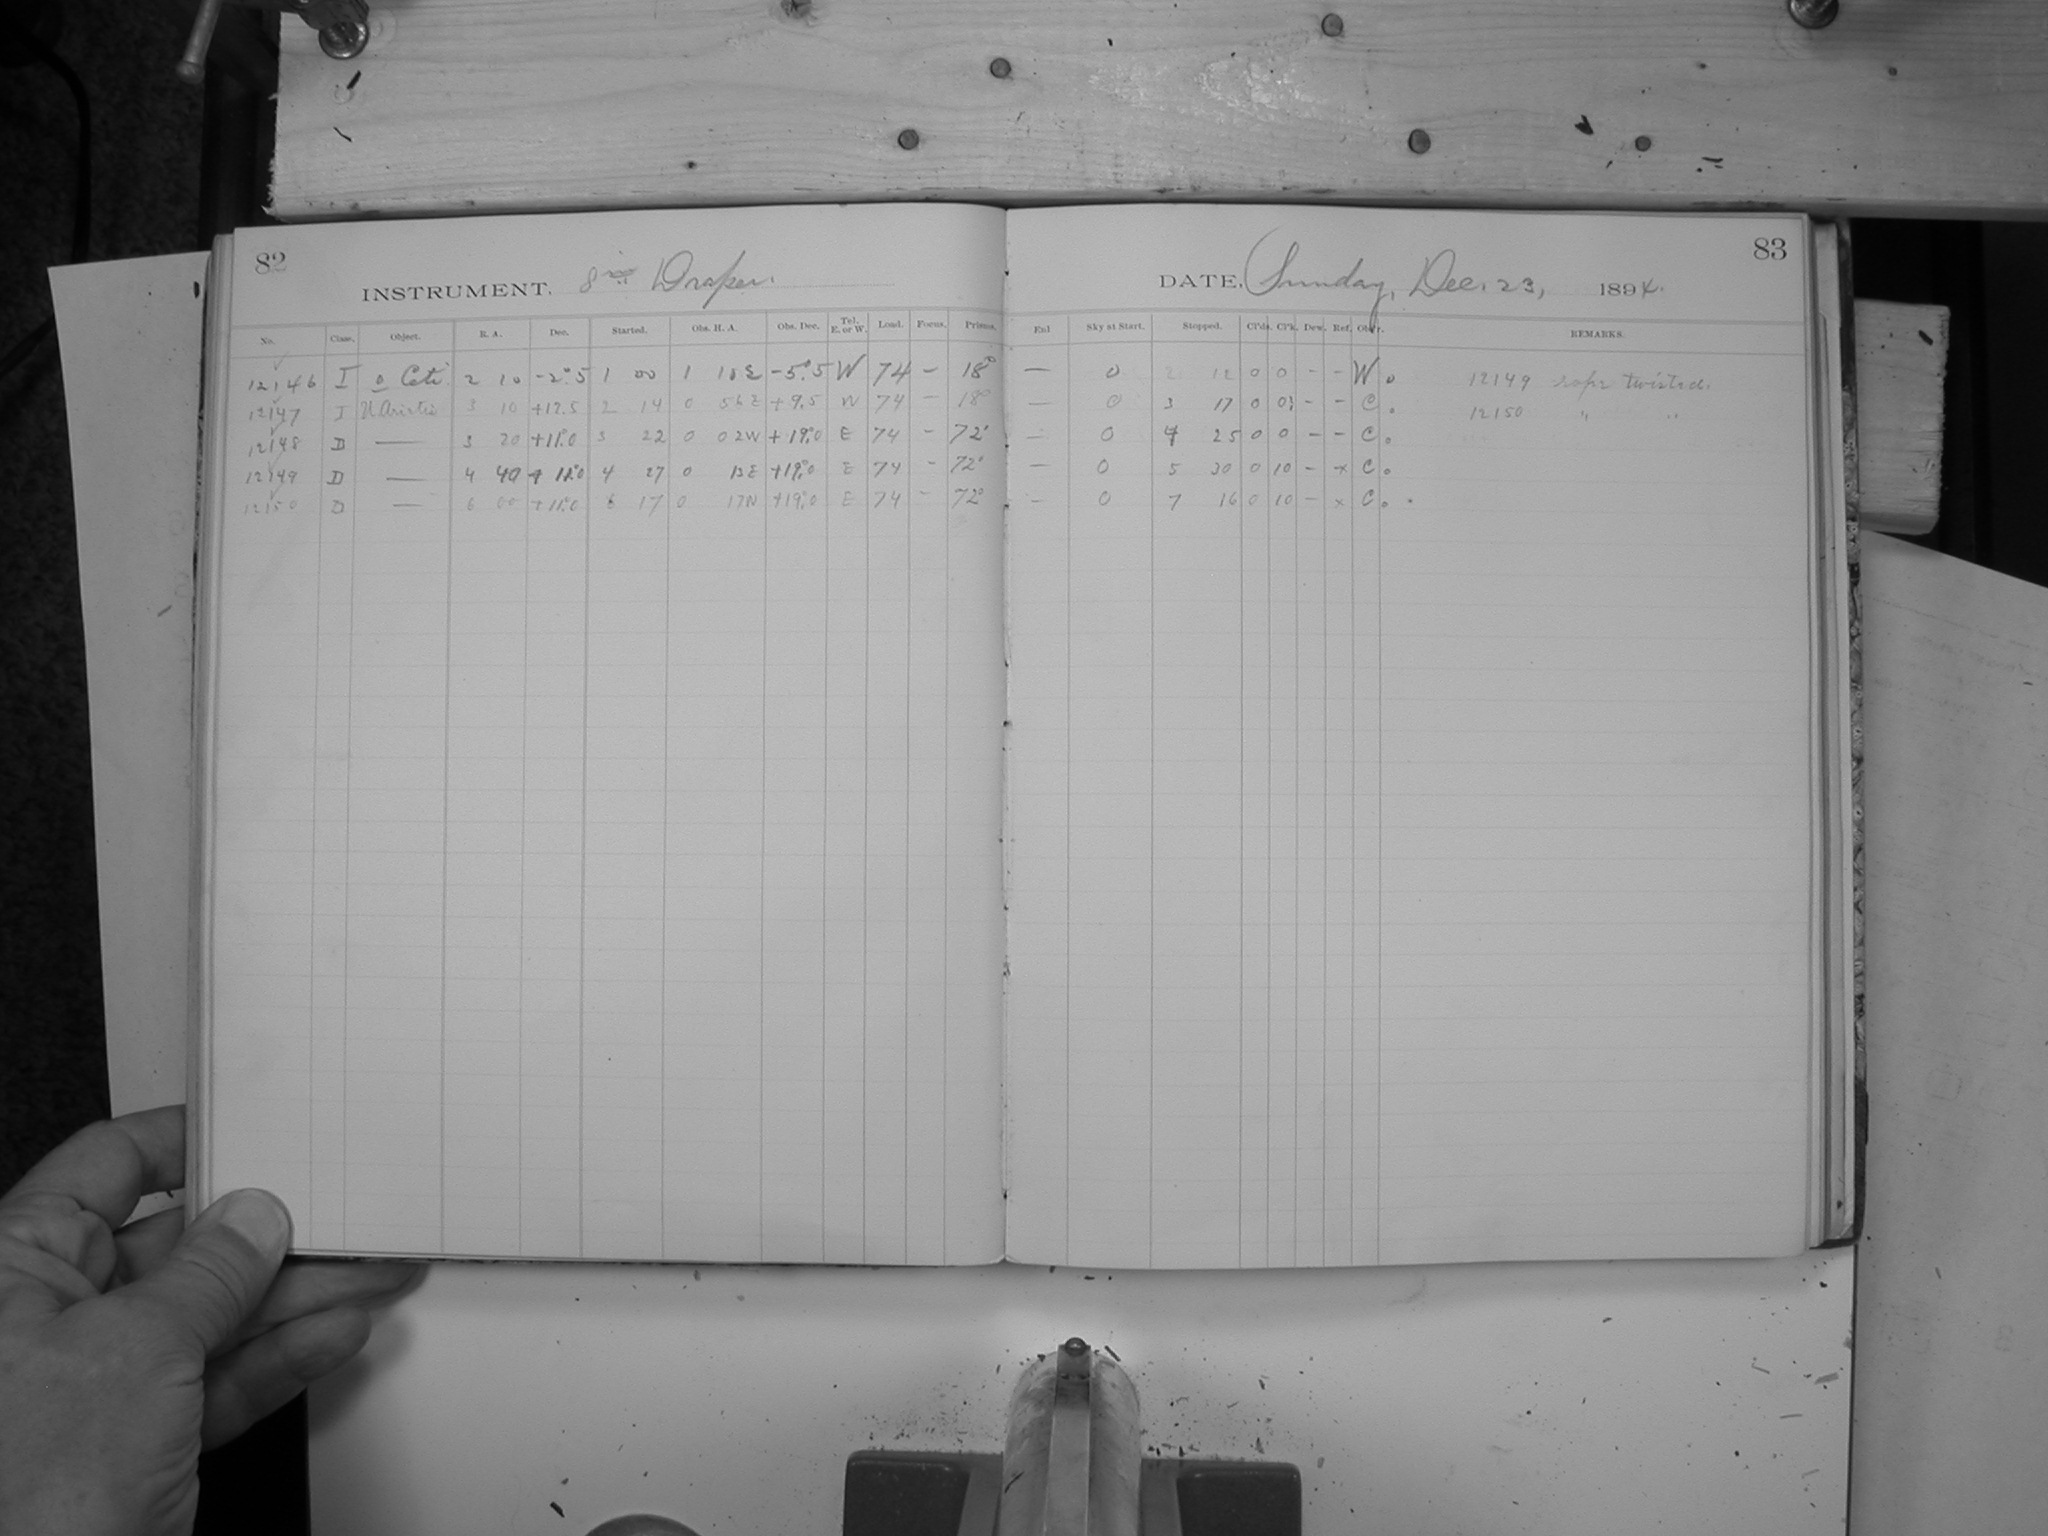 82
INSTRUMENT. 8 in Draper.
No. Class. Object. R. A. Dec. Started. Obs. H. A. Obs. Dec. Tel. E. or W. Load. Focus. Prisms.
12146 I o Ceti 2 10 -2°.5 1 00 1 10 E -5°.5 W 74 - 18°
12147 I 3 10 +12.5 2 14 0 56 E +9.5 W 74 - 18°
12148 D — 3 20 +11°.0 3 22 0 02 W +19°.0 E 74 - 72°
12149 D — 4 40 +11°.0 4 27 0 13 E +19°.0 E 74 - 72°
12150 D — 6 00 +11°.0 6 17 0 17 W +19°.0 E 74 - 72°
83
DATE, Sunday, Dec. 23, 1894.
Enl Sky at Start. Stopped. Cl'ds. Cl'k. Dew. Ref. Obs'r. REMARKS.
— 0 2 12 0 0 - - W. 12149 rope twisted.
— 0 3 17 0 0? - - C. 12150 " "
— 0 4 25 0 0 - - C.
— 0 5 30 0 10 - x C.
— 0 7 16 0 10 - x C.